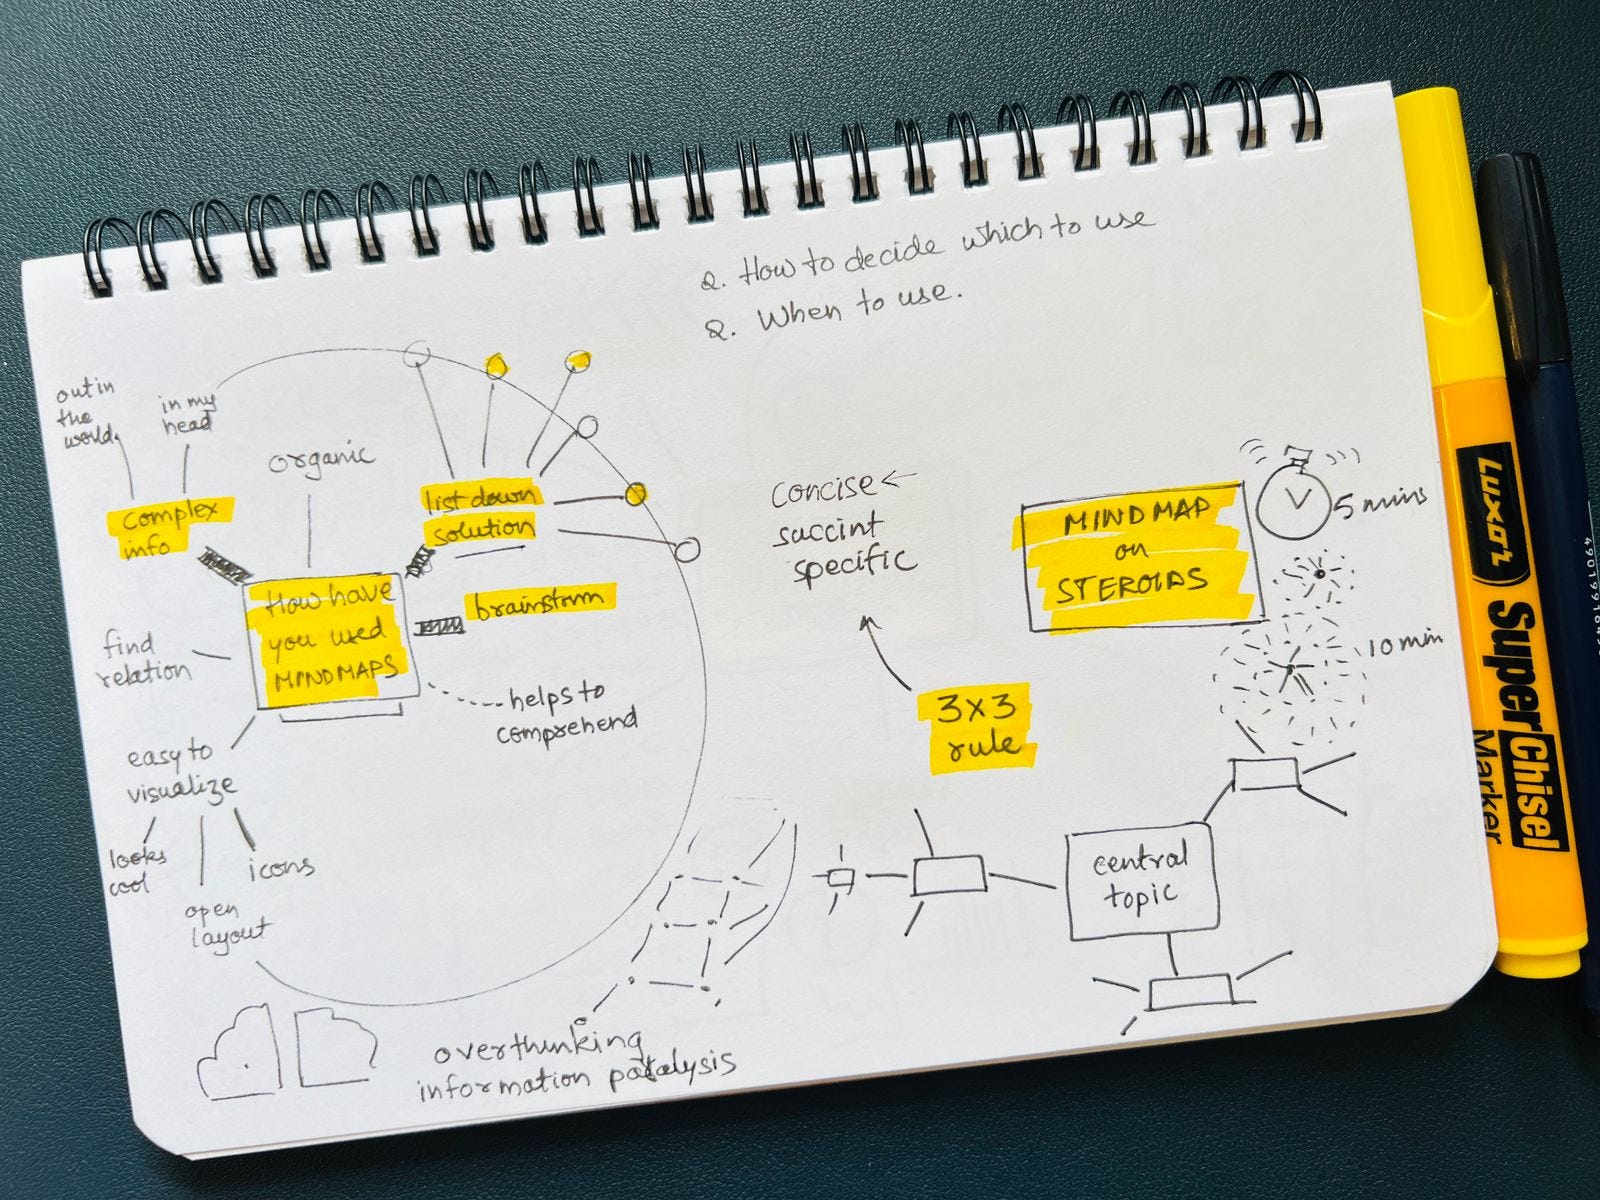 Q. How to decide which to use
Q. When to use.
out in
the
world.
in my
head
organic
complex
info
list down
solution
How have
you used
MINDMAPS
brainstorm
find
relation
helps to
comprehend
easy to
visualize
looks
cool
icons
open
layout
overthinking
information paralysis
concise ←
succint
specific
3x3
rule
MINDMAP
on
STEROIDS
5 mins
10 min
central
topic
Luxor
SuperChisel
Marker